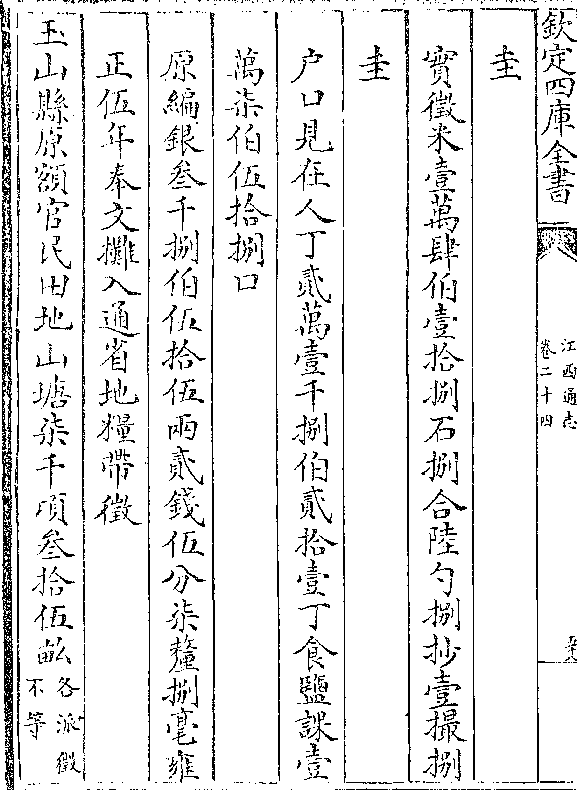 欽定四庫全書
江西通志
卷二十四
圭
實徵米壹萬肆伯壹拾捌石捌合陸勺捌抄壹撮捌
圭
户口見在人丁貳萬壹千捌伯貳拾壹丁食鹽課壹
萬柒伯伍拾捌口
原編銀叁千捌伯伍拾伍兩貳錢伍分柒釐捌毫雍
正伍年奉文攤入通省地糧帶徵
玉山縣原額官民田地山塘柒千頃叁拾伍畝各派徵
不等